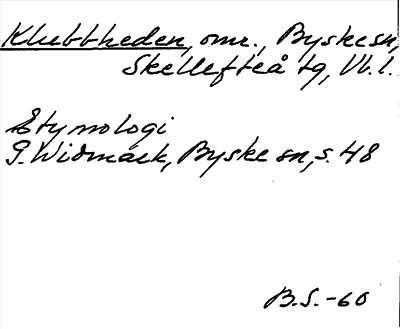 Klubbheden, omr., Byske sn,
Skellefteå tg, Vb. l.
Etymologi
G. Widmark, Byske sn, s. 48
B.S.-60